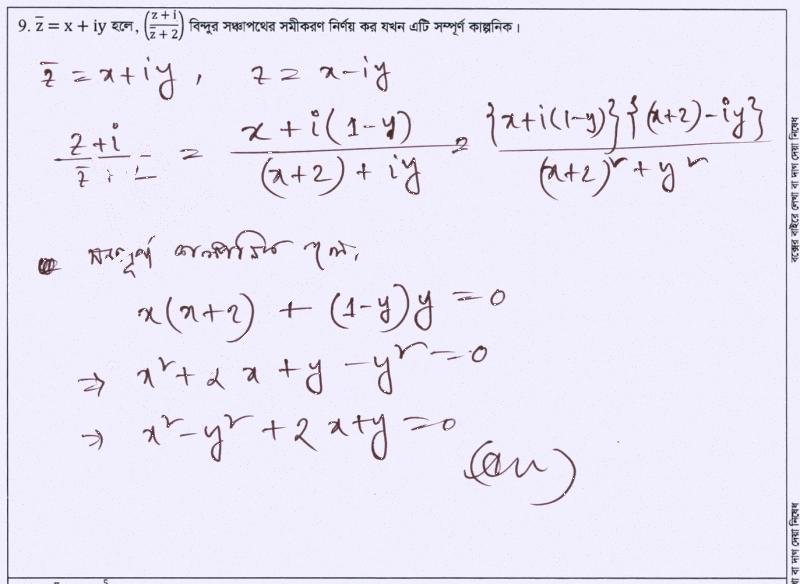 9. z̅ = x + iy হলে, ((z+i)/(z̅+2)) বিন্দুর সঞ্চারপথের সমীকরণ নির্ণয় কর যখন এটি সম্পূর্ণ কাল্পনিক।
z̅ = x+iy , z = x-iy
(z+i)/z̅ = (x+i(1-y))/((x+2)+iy) = ({x+i(1-y)}{(x+2)-iy})/((x+2)²+y²)
সম্পূর্ণ কাল্পনিক হলে,
x(x+2) + (1-y)y = 0
⇒ x²+2x+y-y² = 0
⇒ x²-y²+2x+y = 0
(Ans)
বক্সের বাইরে লেখা বা দাগ দেয়া নিষেধ
বা দাগ দেয়া নিষেধ